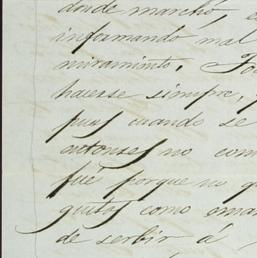 donde marchó
informando mal
miramiento.
haerse siempre,
pues cuando se
entonses no com
fué porque no q
gustos como aman
de serbir á